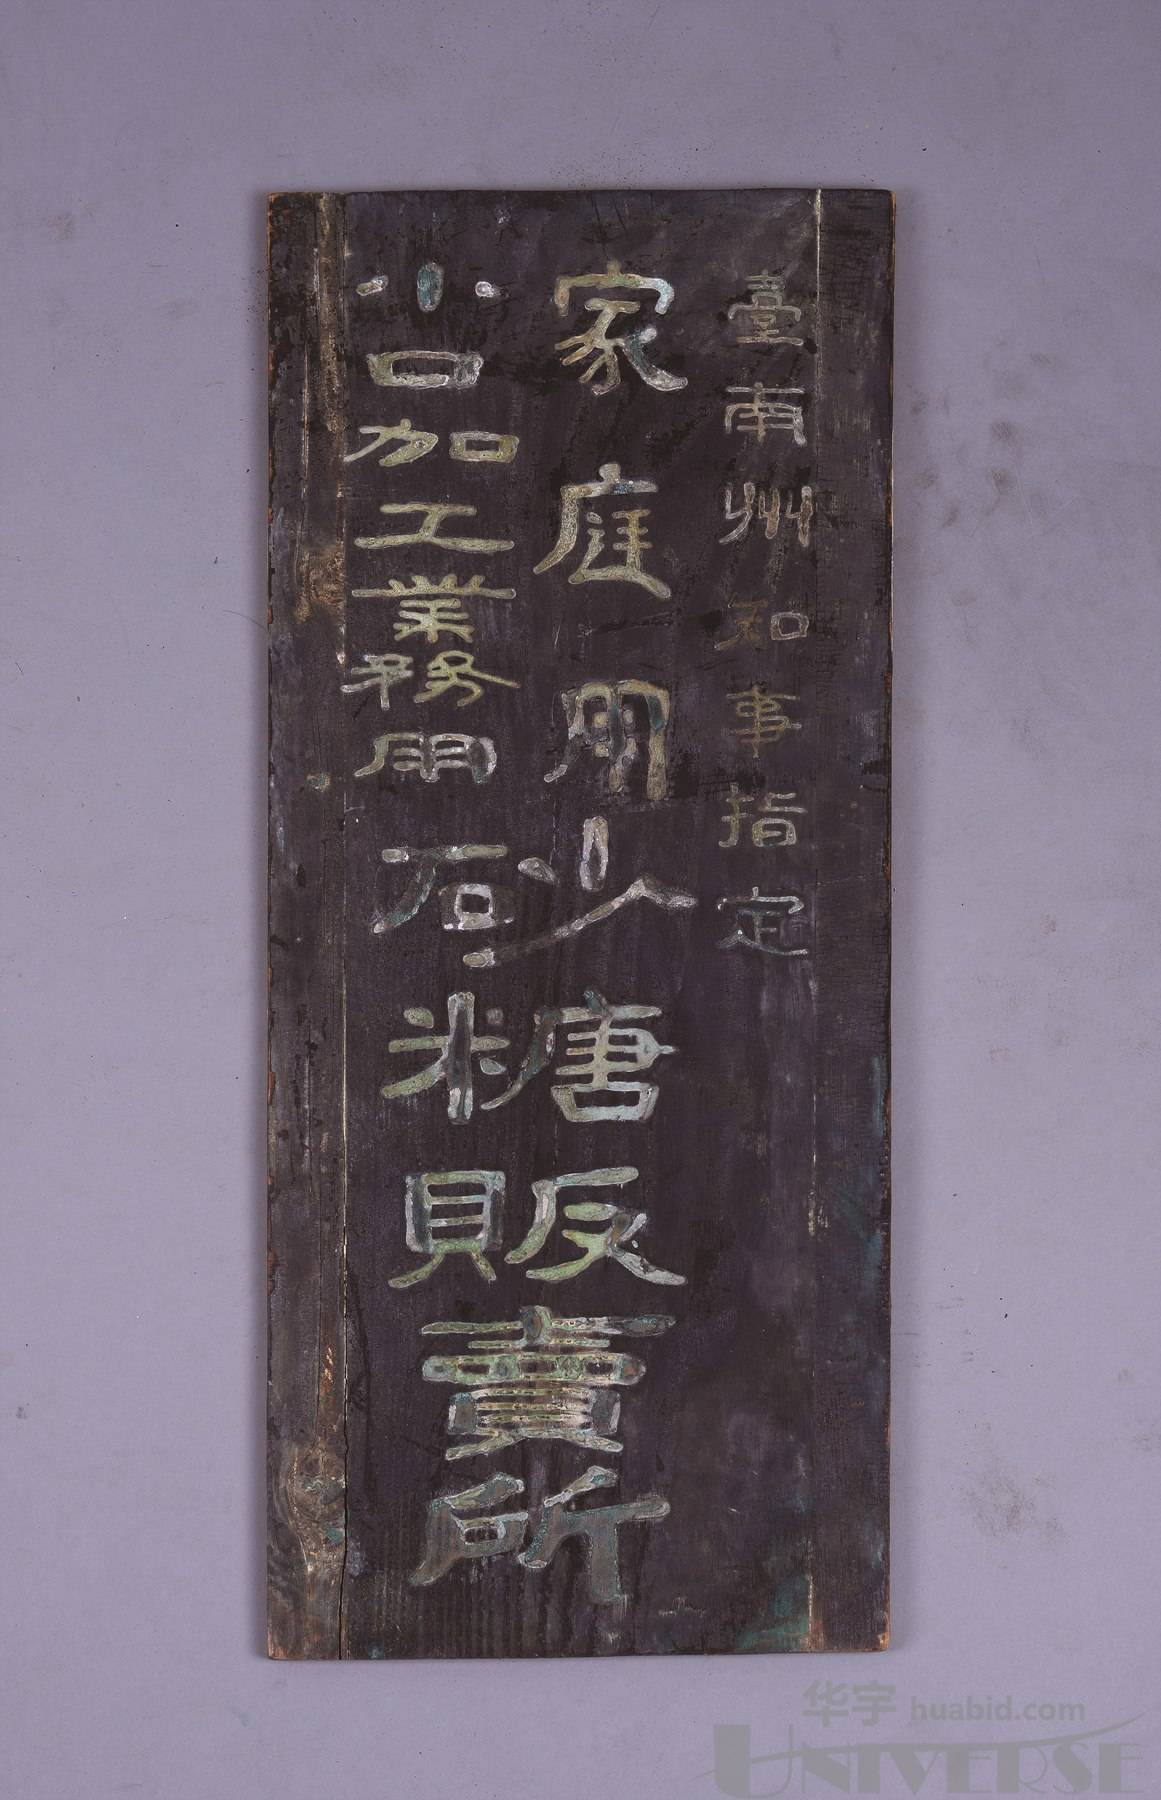 臺南州知事指定
家庭用
小口加工業務用
砂糖販賣所
华宇 huabid.com
UNIVERSE